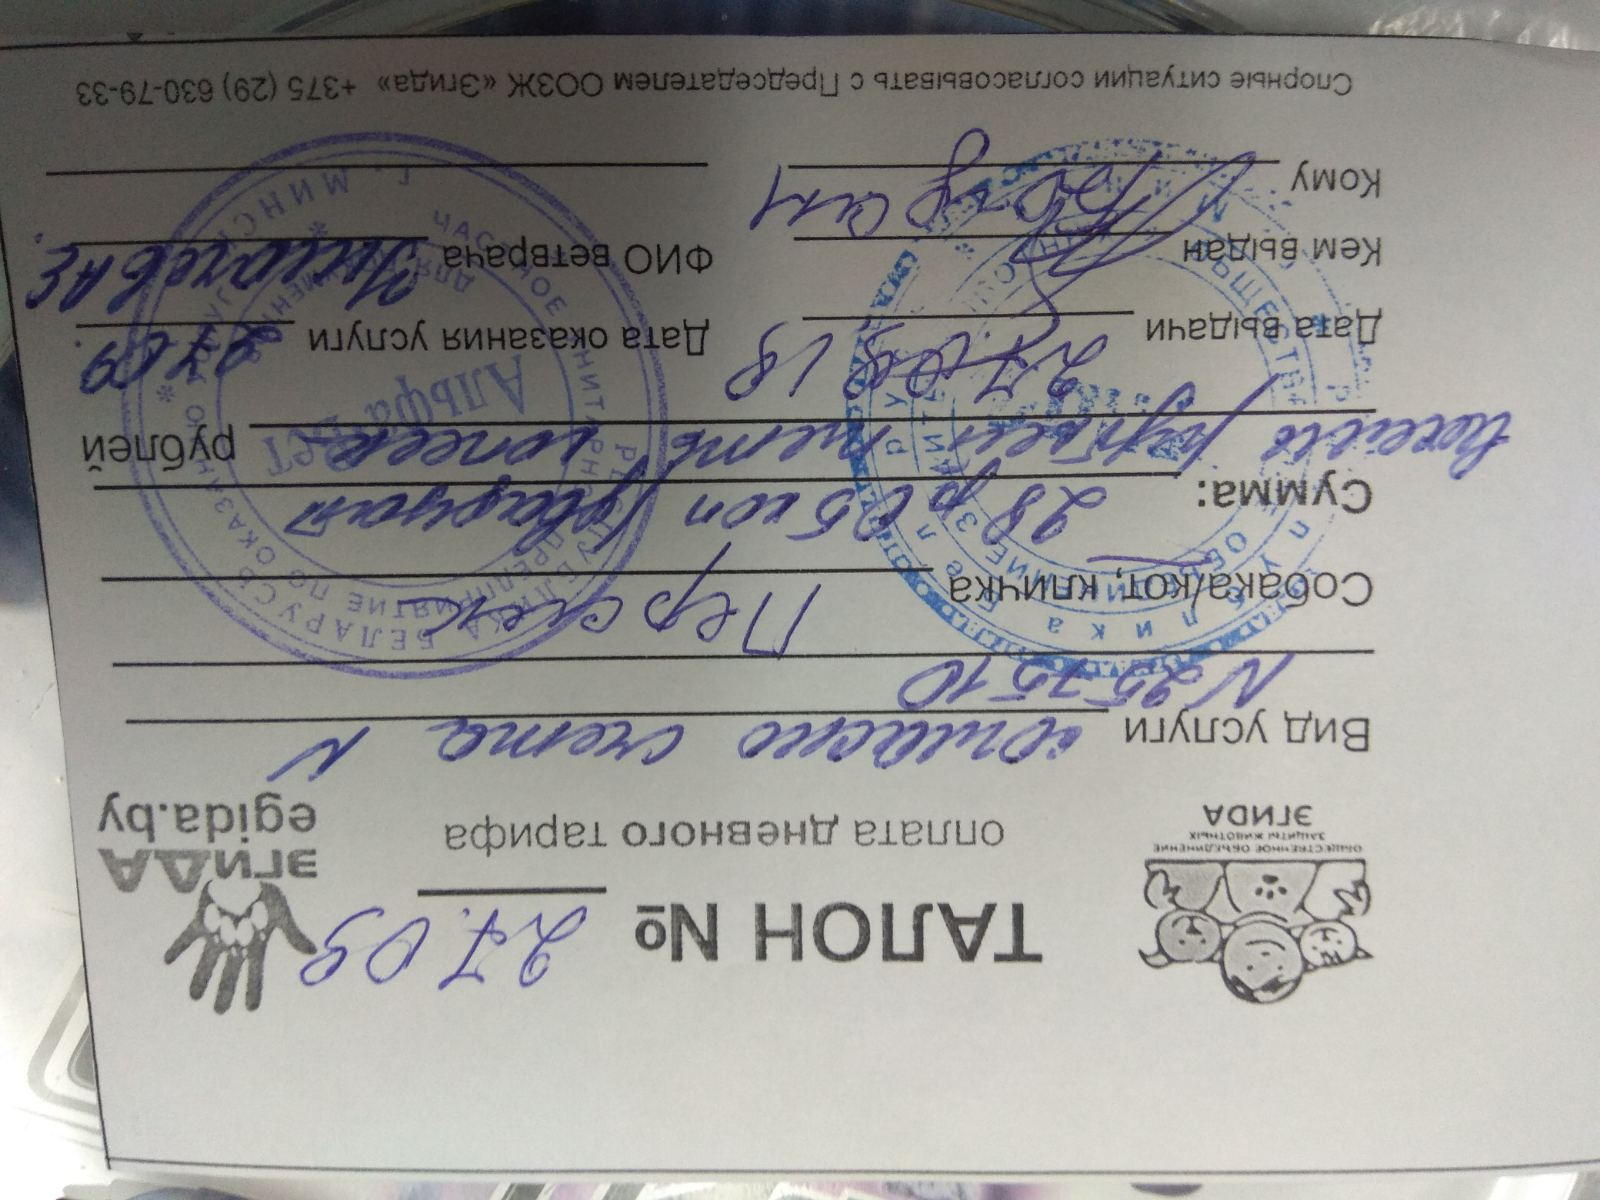 ОБЩЕСТВЕННОЕ ОБЪЕДИНЕНИЕ
ЗАЩИТЫ ЖИВОТНЫХ
ЭГИДА
ТАЛОН № 27.09
оплата дневного тарифа
ЭГИДА
egida.by
Вид услуги согласно счета N
N 257510
Собака/кот, кличка Персик
Сумма: 28 р 05 коп (двадцать
восемь рублей пять копеек рублей
Дата выдачи 27.09.18
Дата оказания услуги 27.09
Кем выдан
ФИО ветврача
Кому
Спорные ситуации согласовывать с Председателем ООЗЖ «Эгида» +375 (29) 630-79-33
РЕСПУБЛИКА БЕЛАРУСЬ
Г. МИНСК
ЧАСТНОЕ УНИТАРНОЕ ПРЕДПРИЯТИЕ ПО ОКАЗАНИЮ
Альфа Вет